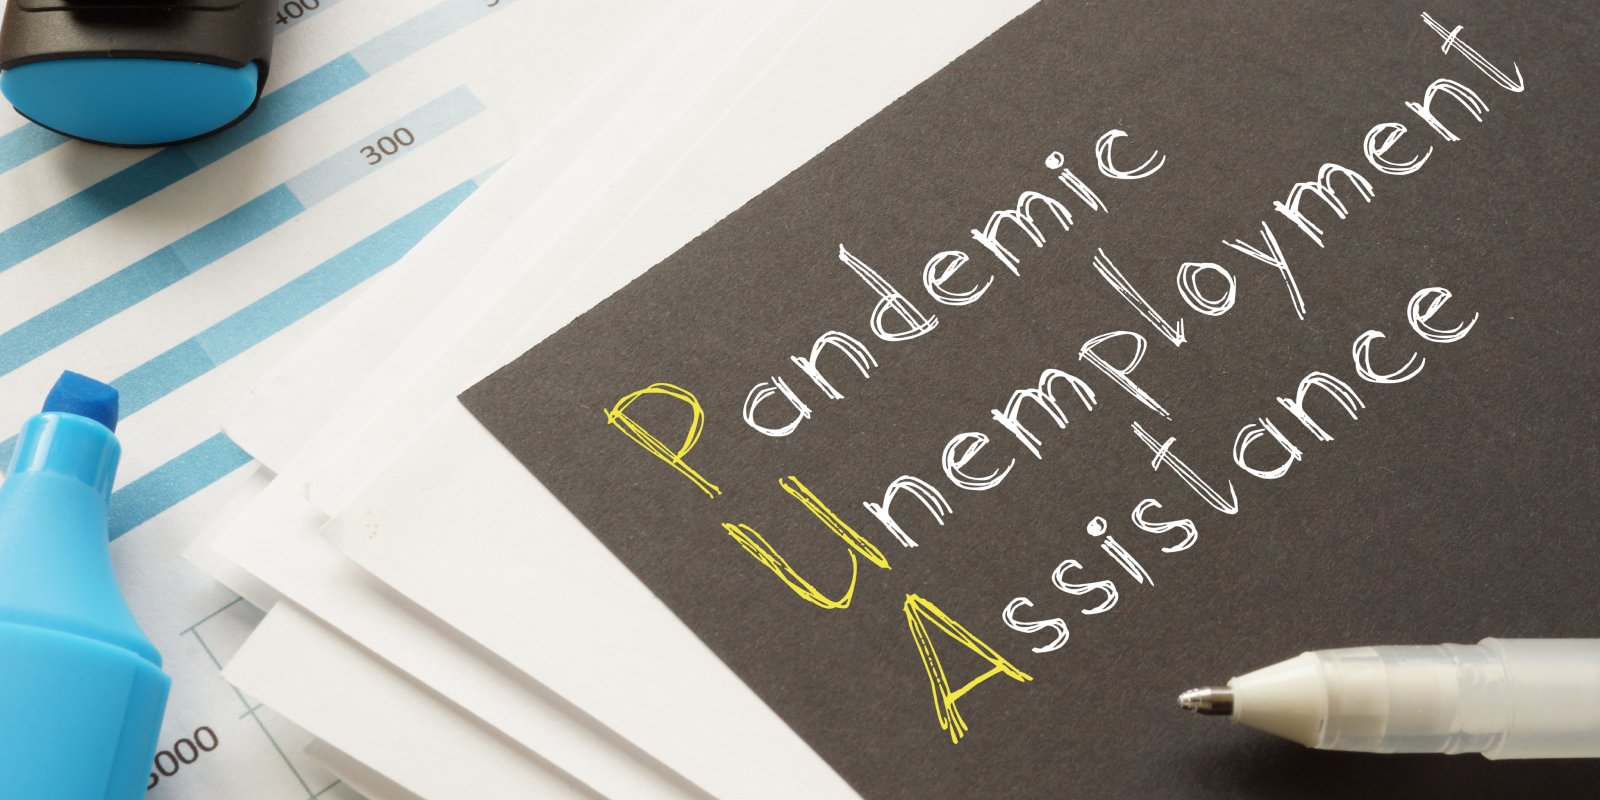 Pandemic
Unemployment
Assistance
400
300